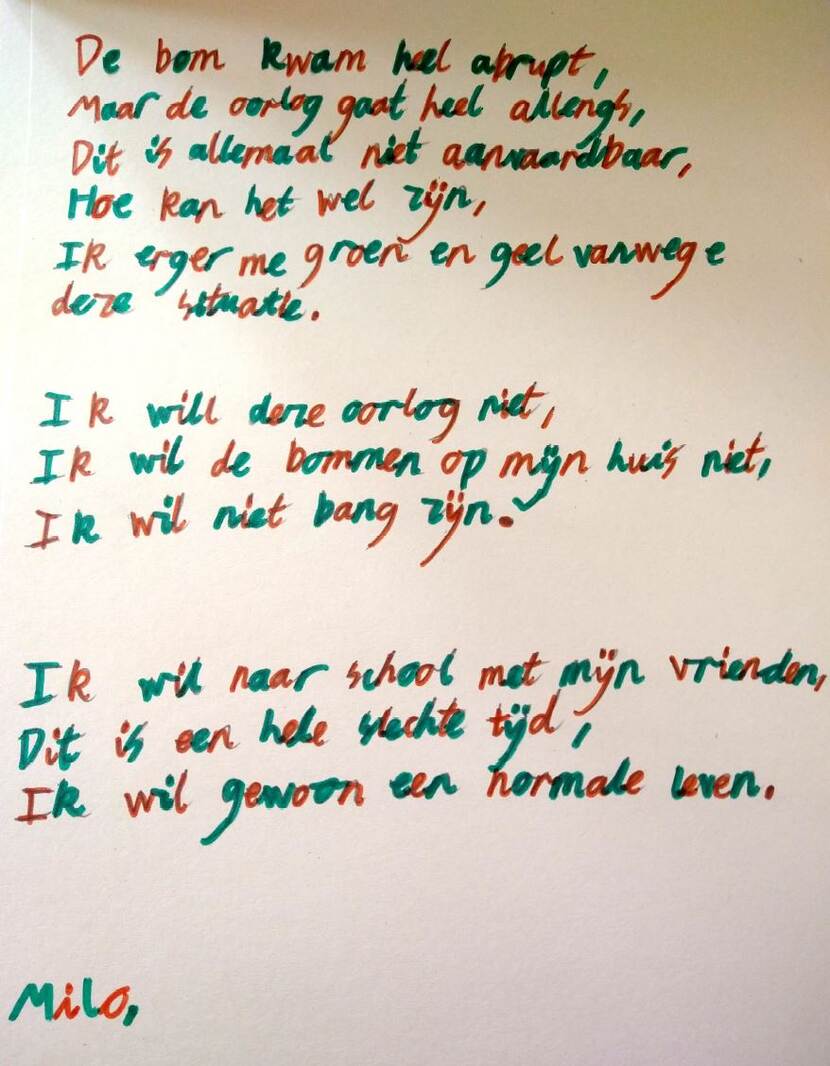 De bom kwam heel abrupt,
Maar de oorlog gaat heel allengs,
Dit is allemaal niet aanvaardbaar,
Hoe kan het wel zijn,
Ik erger me groen en geel vanwege
deze situatie.
Ik will deze oorlog niet,
Ik wil de bommen op mijn huis niet,
Ik wil niet bang zijn.
Ik wil naar school met mijn vrienden,
Dit is een hele slechte tijd,
Ik wil gewoon een normale leven.
Milo,